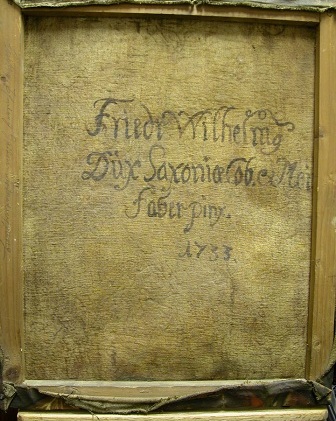 Friedr Wilhelmg
Dux Saxoniæ ob. Mei
Faber pinx.
1733.